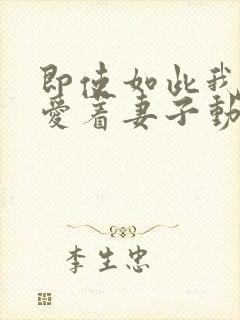 即使如此我
爱着妻子動
李生忠